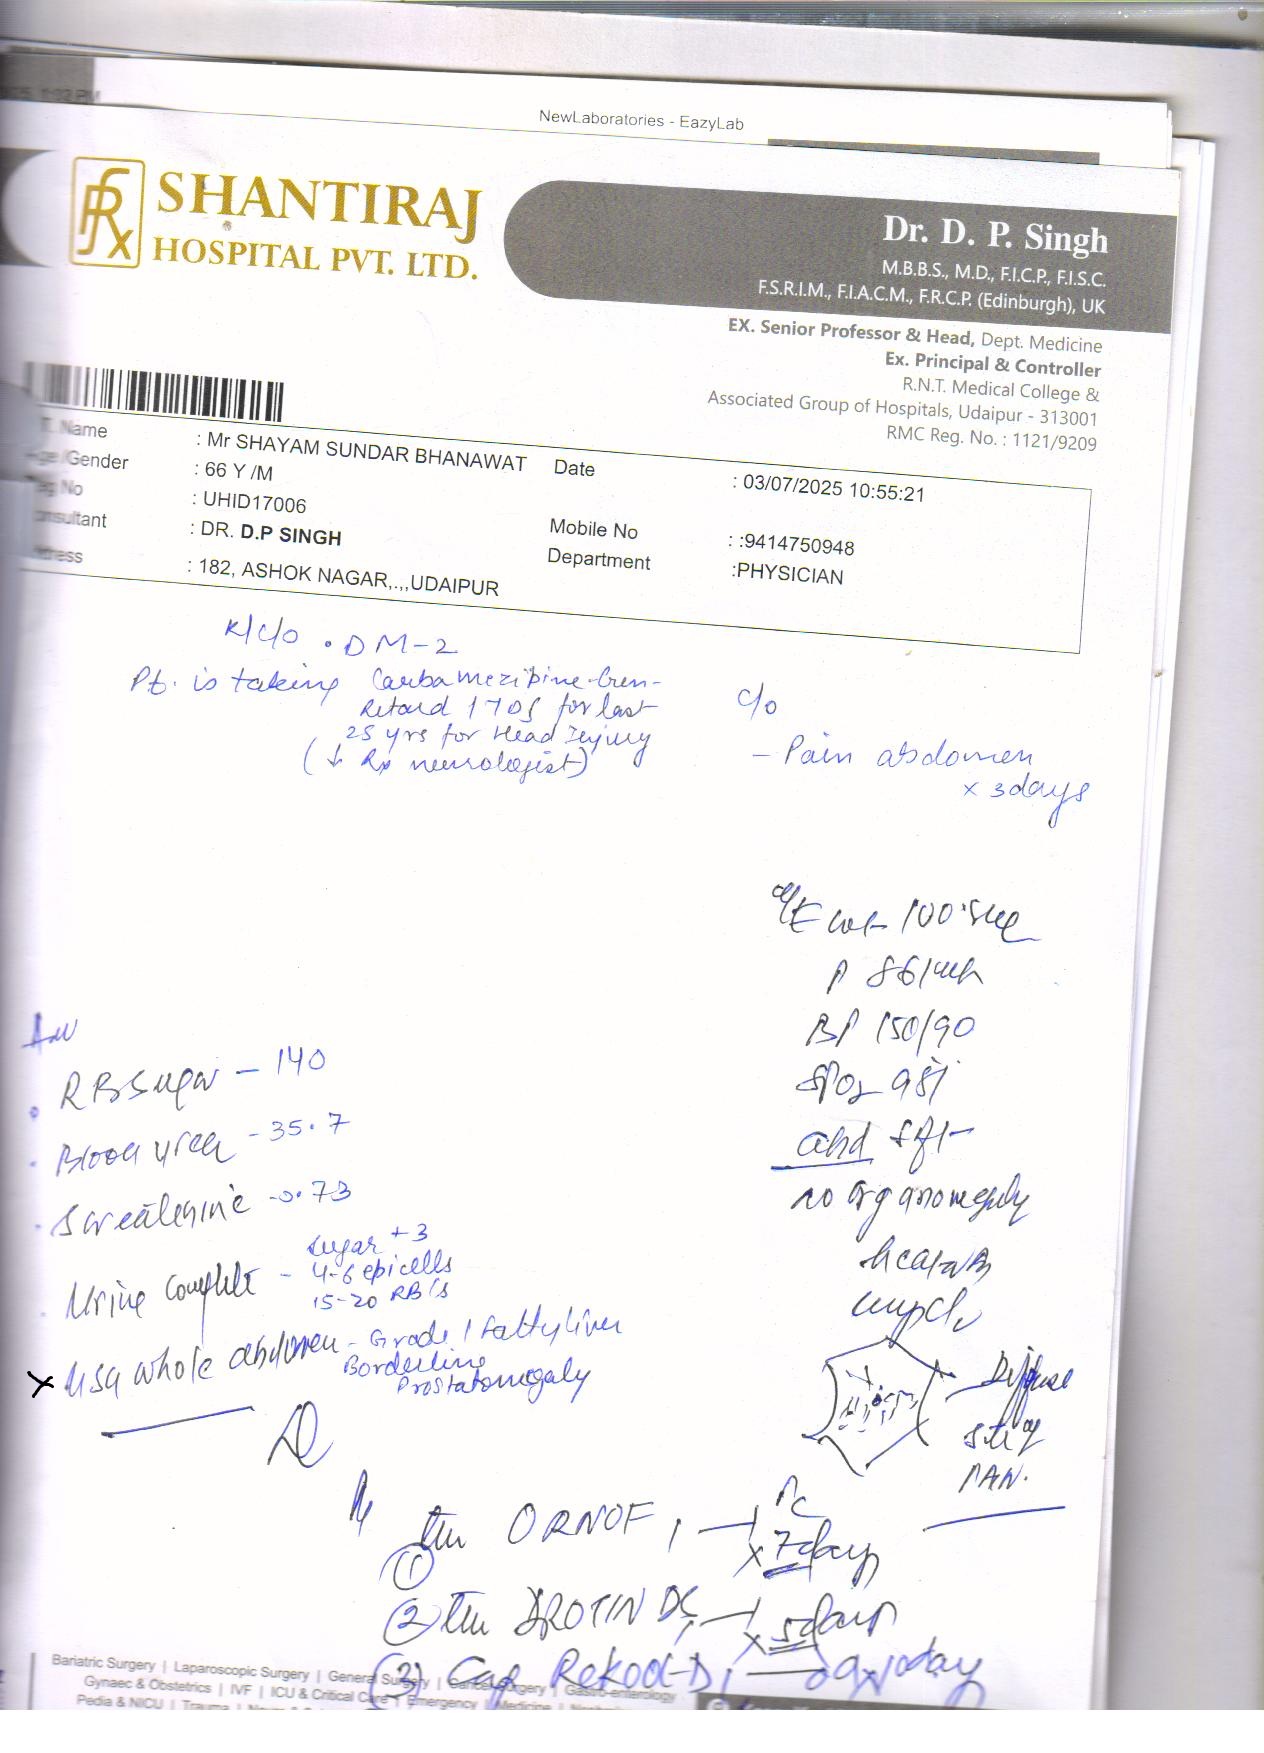 1:02 PM
NewLaboratories - EazyLab
SHANTIRAJ
HOSPITAL PVT. LTD.
Dr. D. P. Singh
M.B.B.S., M.D., F.I.C.P., F.I.S.C.
F.S.R.I.M., F.I.A.C.M., F.R.C.P. (Edinburgh), UK
EX. Senior Professor & Head, Dept. Medicine
Ex. Principal & Controller
R.N.T. Medical College &
Associated Group of Hospitals, Udaipur - 313001
RMC Reg. No. : 1121/9209
Name : Mr SHAYAM SUNDAR BHANAWAT Date : 03/07/2025 10:55:21
/Gender : 66 Y /M
No : UHID17006 Mobile No : :9414750948
onsultant : DR. D.P SINGH Department :PHYSICIAN
dress : 182, ASHOK NAGAR,.,,,UDAIPUR
K/C/O . DM-2
Pt. is taking Carbamezipine
Retard 1 TDS for last
25 yrs for Head Injury
(↓ Rx neurologist)
C/o
- Pain abdomen
x 3 days
O/E wt- 100.5kg
P 86/
BP 150/90
SPO2 98%
abd Soft
no organomegaly
Diffuse
site of
PAIN.
RBSugar - 140
Blood urea - 35.7
S creatinine - 0.73
Urine complete - Sugar +3
4-6 epi cells
15-20 RBCs
x USG whole abdomen - Grade 1 fatty liver
Borderline
Prostatomegaly
Rx
① ORNOF 1 x 7 days
② DROTIN DS 1 x 5 days
(3) Cap Rekool-D 1
Bariatric Surgery | Laparoscopic Surgery | General Surgery | Cancer Surgery | Gastro-enterology
Gynaec & Obstetrics | IVF | ICU & Critical Care | Emergency | Medicine |
Pedia & NICU | Trauma |